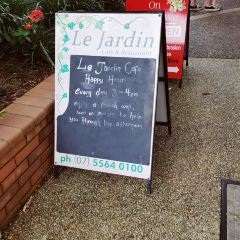 Le Jardin
Cafe & Restaurant
Le Jardin Cafe
Happy Hour
every day 3-4pm
enjoy a
to help
you through the afternoon
ph (07) 5564 0100
On